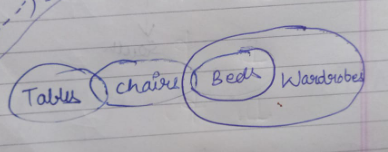 Tables chairs Beds Wardrobes